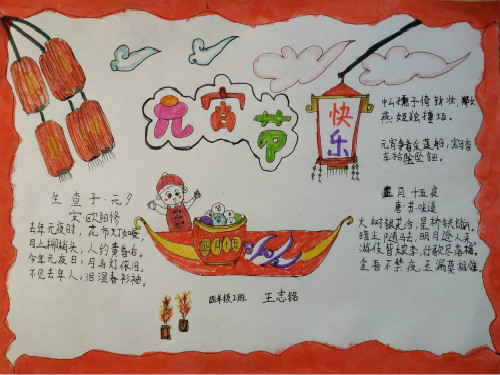 元宵节
快乐
中山孺子倚新妆,郑女
燕姬独擅场。
元宵争看采莲船,宝马香
车拾坠钿。
生查子·元夕
宋·欧阳修
去年元夜时,花市灯如昼。
月上柳梢头,人约黄昏后。
今年元夜日,月与灯依旧。
不见去年人,泪湿春衫袖。
正月十五夜
唐·苏味道
火树银花合,星桥铁锁开。
暗尘随马去,明月逐人来。
游伎皆秾李,行歌尽落梅。
金吾不禁夜,玉漏莫相催。
四年级2班 王志铭